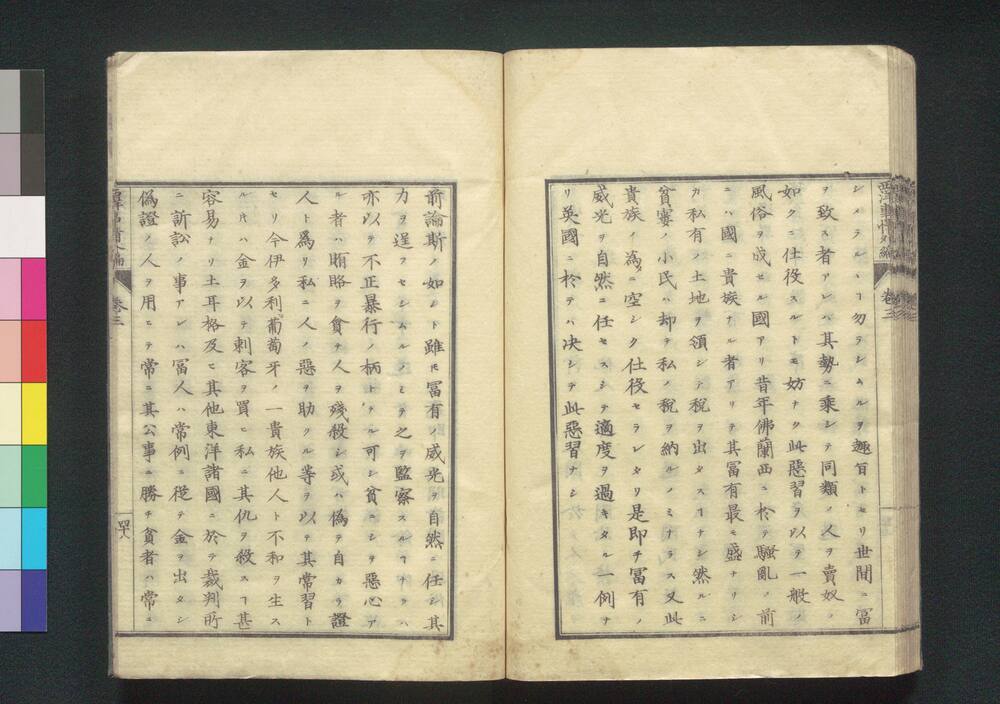 西洋事情外編
巻三
シメラルヽヿ勿ラシムルヲ趣旨トセリ世間ニ冨
ヲ致ス者アレハ其勢ニ乘シテ同類ノ人ヲ賣奴ノ
如クニ仕役スルトモ妨ナク此惡習ヲ以テ一般ノ
風俗ヲ成セル國アリ昔年佛蘭西ニ於テ騷亂ノ前
ニハ國ニ貴族ナル者アリテ其冨有最モ盛ナリシ
カ私有ノ土地ヲ領シテ税ヲ出タスヿナシ然ルニ
貧窶ノ小民ハ却テ私ノ税ヲ納ルノミナラス又此
貴族ノ為ニ空シク仕役セラレタリ是即チ冨有ノ
威光ヲ自然ニ任セスシテ適度ヲ過キタル一例ナ
リ英國ニ於テハ决シテ此惡習ナシ
前論斯ノ如シト雖モ冨有ノ威光ヲ自然ニ任シ其
力ヲ逞フセシムルノミニテ之ヲ監察スルヿナクハ
亦以テ不正暴行ノ柄トナル可シ貧ニシテ惡心ア
ル者ハ賄賂ヲ貪テ人ヲ殘殺シ或ハ偽テ自カラ證
人ト爲リ私ニ人ノ惡ヲ助クル等ヲ以テ其常習ト
セリ今伊多利葡萄牙ノ一貴族他人ト不和ヲ生ス
ルトキハ金ヲ以テ刺客ヲ買ヒ私ニ其仇ヲ殺スヿ甚
容易ナリ土耳格及ヒ其他東洋諸國ニ於テ裁判所
ニ訴訟ノ事アレハ冨人ハ常例ニ從テ金ヲ出タシ
偽證ノ人ヲ用ヒテ常ニ其公事ニ勝チ貧者ハ常ニ
巻三
四十八